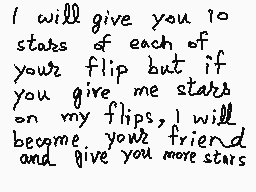 I will give you 10
stars of each of
your flip but if
you give me stars
on my flips, I will
become your friend
and give you more stars